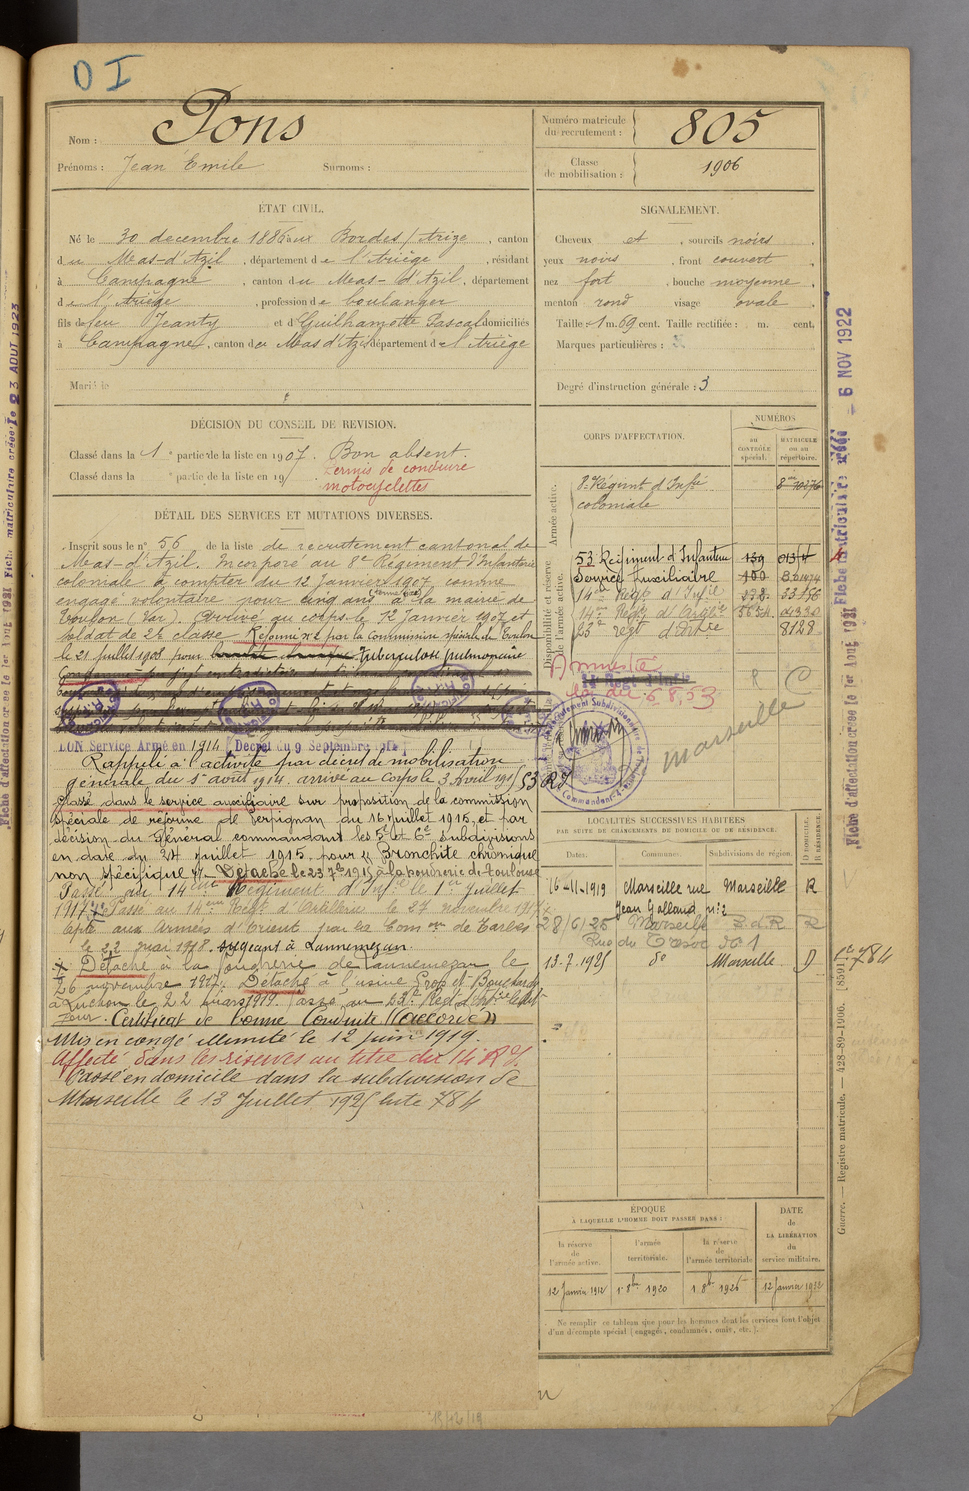 D I
Nom : Pons
Prénoms : Jean Emile Surnoms :
Numéro matricule du recrutement : 805
Classe de mobilisation : 1906
ÉTAT CIVIL.
Né le 30 decembre 1886 aux Bordes / Arize, canton
du Mas-d'Azil, département de l'Ariège, résidant
à Campagne, canton du Mas-d'Azil, département
de l'Ariège, profession de boulanger
fils de feu Jeanty et de Guilhamette Pascal domiciliés
à Campagne, canton du Mas d'Azil, département de l'Ariège
Marié le
SIGNALEMENT.
Cheveux et, sourcils noirs
yeux noirs, front couvert
nez fort, bouche moyenne
menton rond visage ovale
Taille : 1 m. 69 cent. Taille rectifiée : m. cent.
Marques particulières :
Degré d'instruction générale : 3
DÉCISION DU CONSEIL DE REVISION.
Classé dans la 1e partie de la liste en 1907. Bon absent.
Classé dans la e partie de la liste en 19
Permis de conduire
motocyclettes
DÉTAIL DES SERVICES ET MUTATIONS DIVERSES.
Inscrit sous le n° 56 de la liste de recrutement cantonal de
Mas-d'Azil. Incorporé au 8e Régiment d'Infanterie
coloniale à compter du 12 Janvier 1907 comme
engagé volontaire pour cinq ans à la mairie de
Toulon (Var). Arrivé au corps le 12 Janvier 1907 et
soldat de 2e classe Réformé n°2 par la commission spéciale de Toulon
le 21 juillet 1908 pour Tuberculose pulmonaire
BON Service Armé en 1914 Décret du 9 Septembre 1914
Rappelé à l'activité par décret de mobilisation
générale du 1er août 1914. arrivé au corps le 3 Avril 1915 53 RI
Classé dans le service auxiliaire sur proposition de la commission
spéciale de réforme de Perpignan du 16 juillet 1915, et par
décision du Général commandant les 5e et 6e subdivisions
en date du 24 juillet 1915 pour "Bronchite chronique
non spécifique". Détaché le 23 7bre 1915 à la poudrerie de Toulouse
Passé au 14eme Régiment d'Infie le 1er juillet
1917. Passé au 14eme Régt d'Artillerie le 27 novembre 1917
aux Armées d'Orient par la Comon de Tarbes
le 22 mai 1918. sugeant à Lannemezan.
Détaché à la Lannemezan le
26 novembre 1917. Détaché à l'usine
à Luchon le 22 mars 1919. Passé au 23e Régt d'Artie le dit
jour. Certificat de bonne Conduite "Accordé"
Mis en congé illimité le 12 juin 1919.
Affecté dans les réserves au titre du 14 R I.
Passé en domicile dans la subdivision de
Marseille le 13 Juillet 1925 liste 784
CORPS D'AFFECTATION.
NUMÉROS
au CONTRÔLE spécial.
MATRICULE ou au répertoire.
Armée active.
8e Régiment d'Infie
coloniale
Disponibilité et réserve de l'armée active.
53 Régiment d'Infanterie 139
Service Auxiliaire 100
14e Régt d'Infie 278
14eme Régt d'Artie
23e régt d'Artie 8128
Amnistié
loi du 6.8.53
R C
Marseille
LOCALITÉS SUCCESSIVES HABITÉES
PAR SUITE DE CHANGEMENTS DE DOMICILE OU DE RÉSIDENCE.
Dates. Communes. Subdivisions de région. D DOMICILE. R RÉSIDENCE.
16-11-1919 Marseille rue Marseille R
Jean Galland n° 2
28/6/25 Marseille B.d.R R
Rue du Tasse 1
13-7-1925 do Marseille D
784
ÉPOQUE
À LAQUELLE L'HOMME DOIT PASSER DANS :
la réserve de l'armée active. l'armée territoriale. la réserve de l'armée territoriale
DATE de LA LIBÉRATION du service militaire.
12 Janvier 1912 1er 8bre 1920 1er 8bre 1926 12 Janvier 1932
Ne remplir ce tableau que pour les hommes dont les services font l'objet
d'un décompte spécial (engagés, condamnés, omis, etc.).
Guerre. — Registre matricule. — 428-89-1906. [8591]
Fiche matriculaire créée — 6 NOV 1922
Fiche d'affectation créée le 1er Août 1921
Fiche matriculaire créée le 23 AOUT 1923
Fiche d'affectation créée le 1er Août 1921